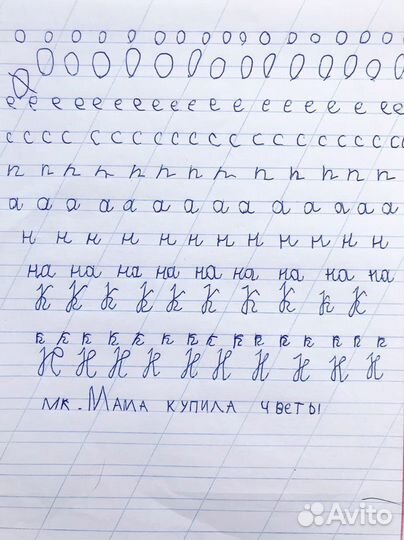 о о о о о о о о о о о о о о о о о
О О О О О О О О О О О О О О
е е е е е е е е е е е е е е е е е е е
с с с с с с с с с с с с с с с с с с с с с
п п п п п п п п п п п п п
а а а а а а а а а а а а а а
н н н н н н н н н н н н
на на на на на на на на на
К К К К К К К К К К
к к к к к к к к к к к к к к к
Н Н Н Н Н Н Н Н Н Н
мк. Маиа купила чветы
Avito